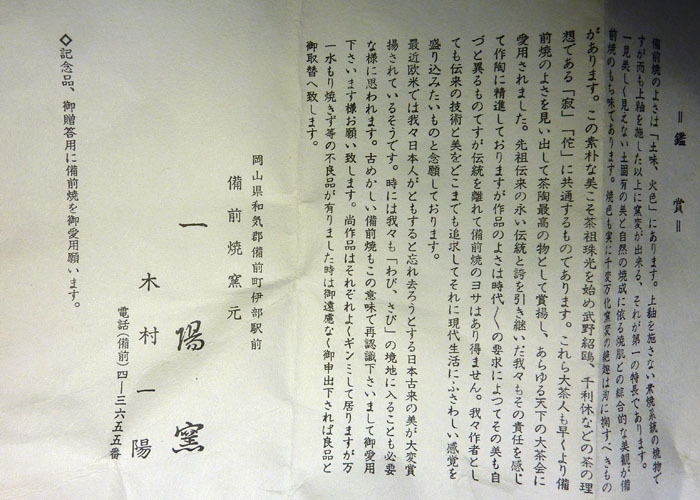 ＝鑑　賞＝
備前焼のよさは「土味、火色」にあります。上釉を施さない素焼系統の焼物で
すが而も上釉を施した以上に窯変が出来る、それが第一の特長であります。
一見美しく見えない土固有の美と自然の焼成に依る焼肌との綜合的な美観が備
前焼のもち味であります。焼色も実に千変万化窯変の絶趣は河に掬すべきもの
があります。この素朴な美こそ茶祖珠光を始め武野紹鴎、千利休などの茶の理
想である「寂」「侘」に共通するものであります。これら大茶人も早くより備
前焼のよさを見い出して茶陶最高の物として賞揚し、あらゆる天下の大茶会に
愛用されました。先祖伝来の永い伝統と誇を引き継いだ我々もその責任を感じ
て作陶に精進しておりますが作品のよさは時代〱の要求によつてその美も自
づと異るものですが伝統を離れて備前焼のヨサはあり得ません。我々作者とし
ても伝来の技術と美をどこまでも追求してそれに現代生活にふさわしい感覚を
盛り込みたいものと念願しております。
最近欧米では我々日本人がともすると忘れ去ろうとする日本古来の美が大変賞
揚されているそうです。時には我々も「わび、さび」の境地に入ることも必要
な様に思われます。古めかしい備前焼もこの意味で再認識下さいまして御愛用
下さいます様お願い致します。尚作品はそれぞれよくギンミして居りますが万
一水もり焼きず等の不良品が有りました時は御遠慮なく御申出下されば良品と
御取替へ致します。
岡山県和気郡備前町伊部駅前
備前焼窯元
一陽窯
木村一陽
電話(備前)四―三六五五番
◇記念品、御贈答用に備前焼を御愛用願います。